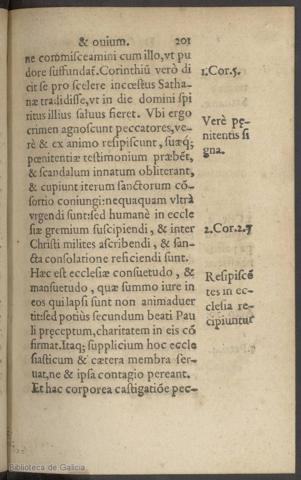 & ouium. 201
ne coṁmisceamini cum illo, vt pu
dore suffundat̃. Corinthiũ verò di
cit se pro scelere incœstus Satha-
næ tradidisse, vt in die domini spi
ritus illius saluus fieret. Vbi ergo
crimen agnoscunt peccatores, ve-
rè & ex animo resipiscunt, suæq;
pœnitentiæ testimonium præbẽt,
& scandalum innatum obliterant,
& cupiunt iterum sanctorum cõ-
sortio coniungi: nequaquam vltrà
vrgendi sunt: sed humanè in eccle
siæ gremium suscipiendi, & inter
Christi milites ascribendi, & san-
cta consolatione reficiendi sunt.
Hæc est ecclesiæ consuetudo, &
mansuetudo, quæ summo iure in
eos qui lapsi sunt non animaduer
tit: sed potiùs secundum beati Pau
li præceptum, charitatem in eis cõ
firmat. Itaq; supplicium hoc eccle
siasticum & cætera membra ser-
uat, ne & ipsa contagio pereant.
Et hac corporea castigatiõe pec-
1. Cor. 5.
Verè pę-
nitentis si
gna.
2. Cor. 2. 7
Resipiscẽ
tes in ec-
clesia re-
cipiuntur
Biblioteca de Galicia